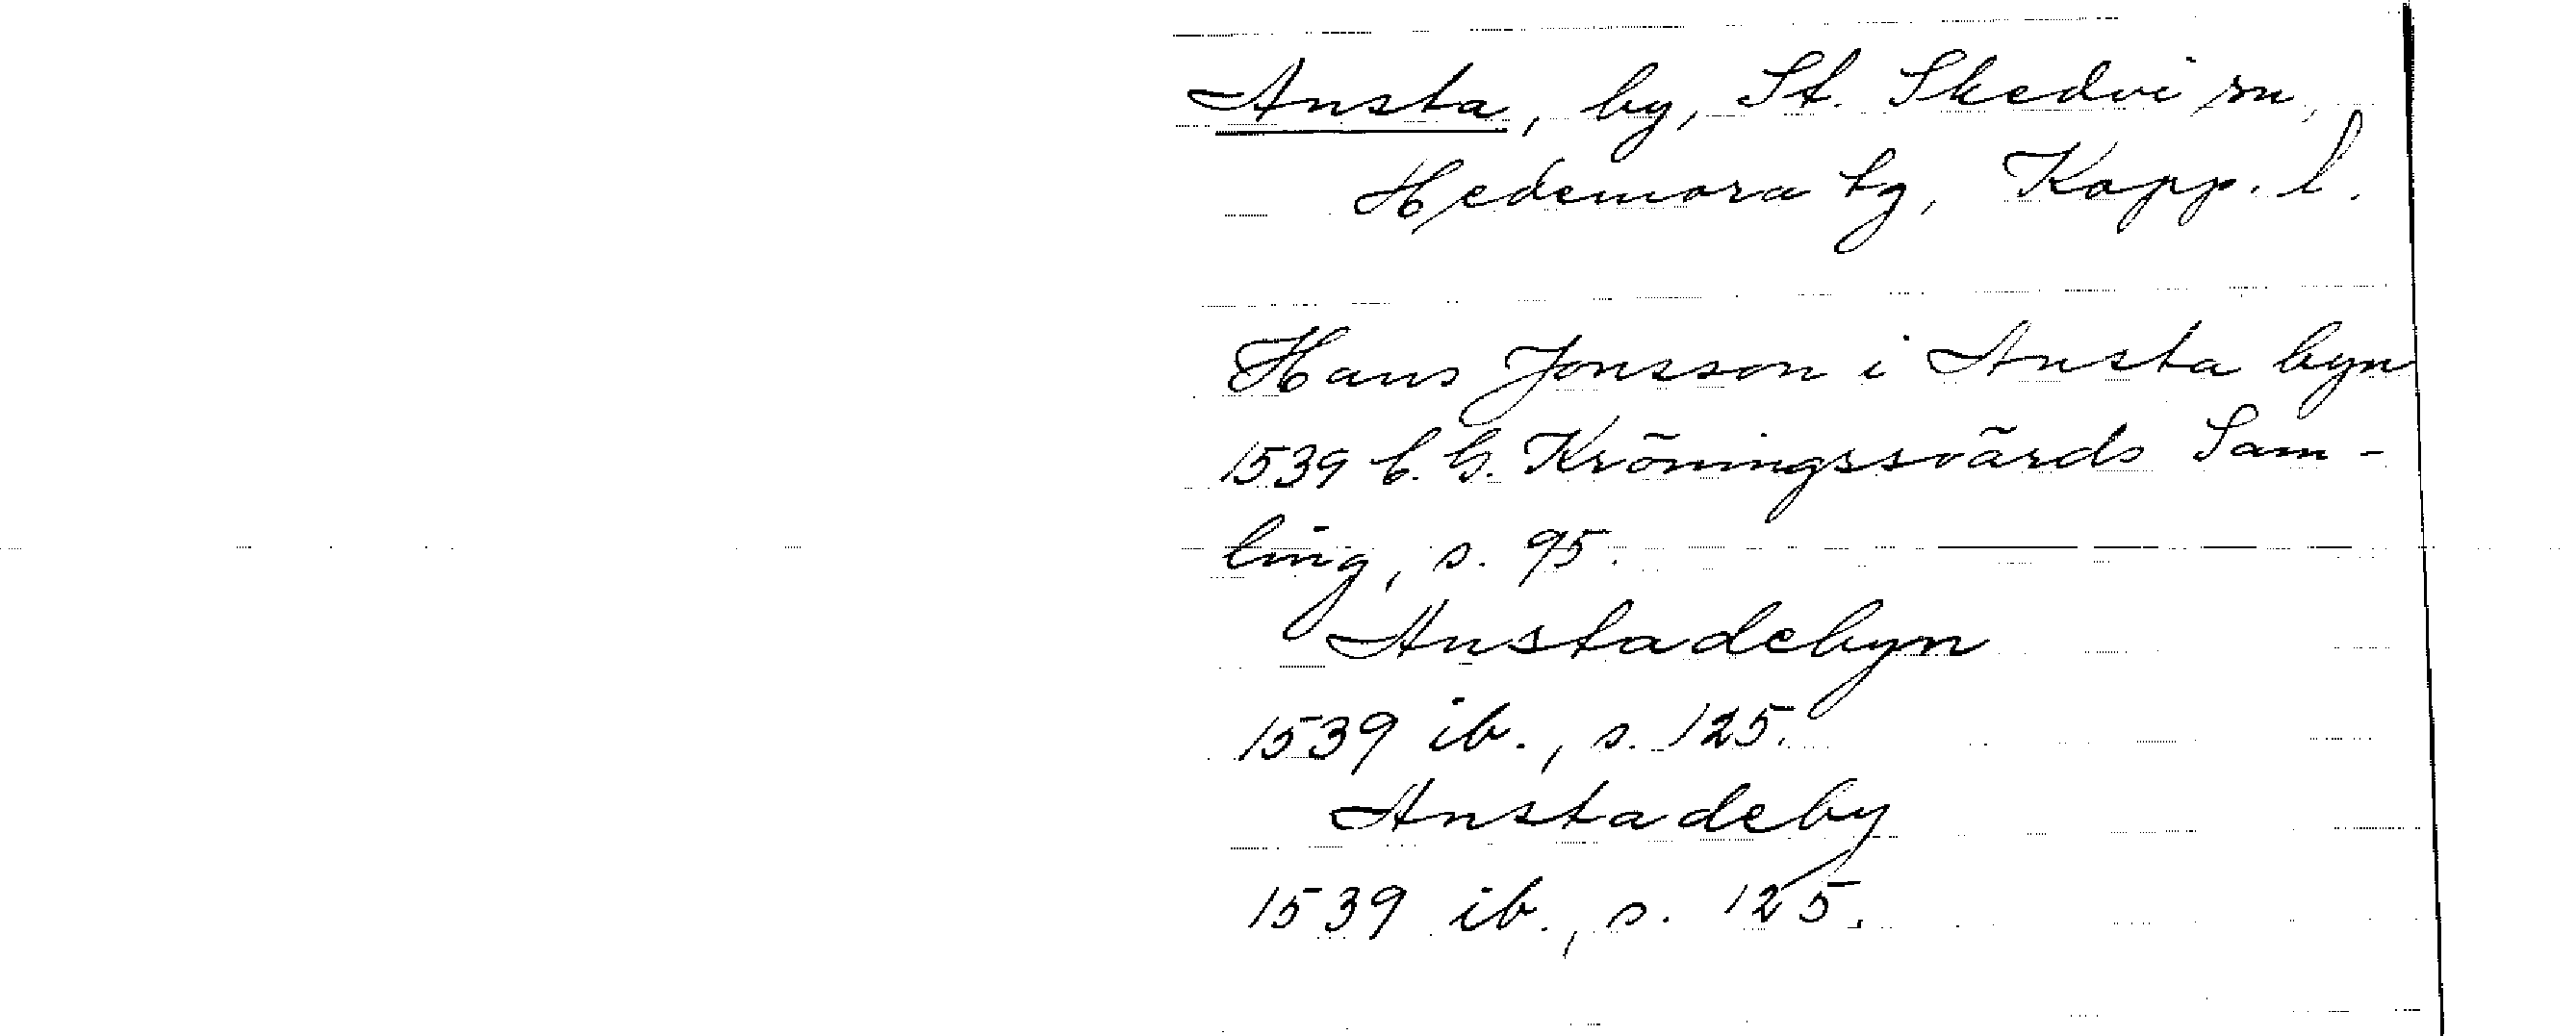 Ansta, by, St. Skedvi sn,
Hedemora tg, Kopp. l.
Hans Jonsson i Ansta byn
1539 C. G. Kröningssvärds Sam-
ling, s. 95.
Anstadebyn
1539 ib., s. 125.
Anstadeby
1539 ib., s. 125.